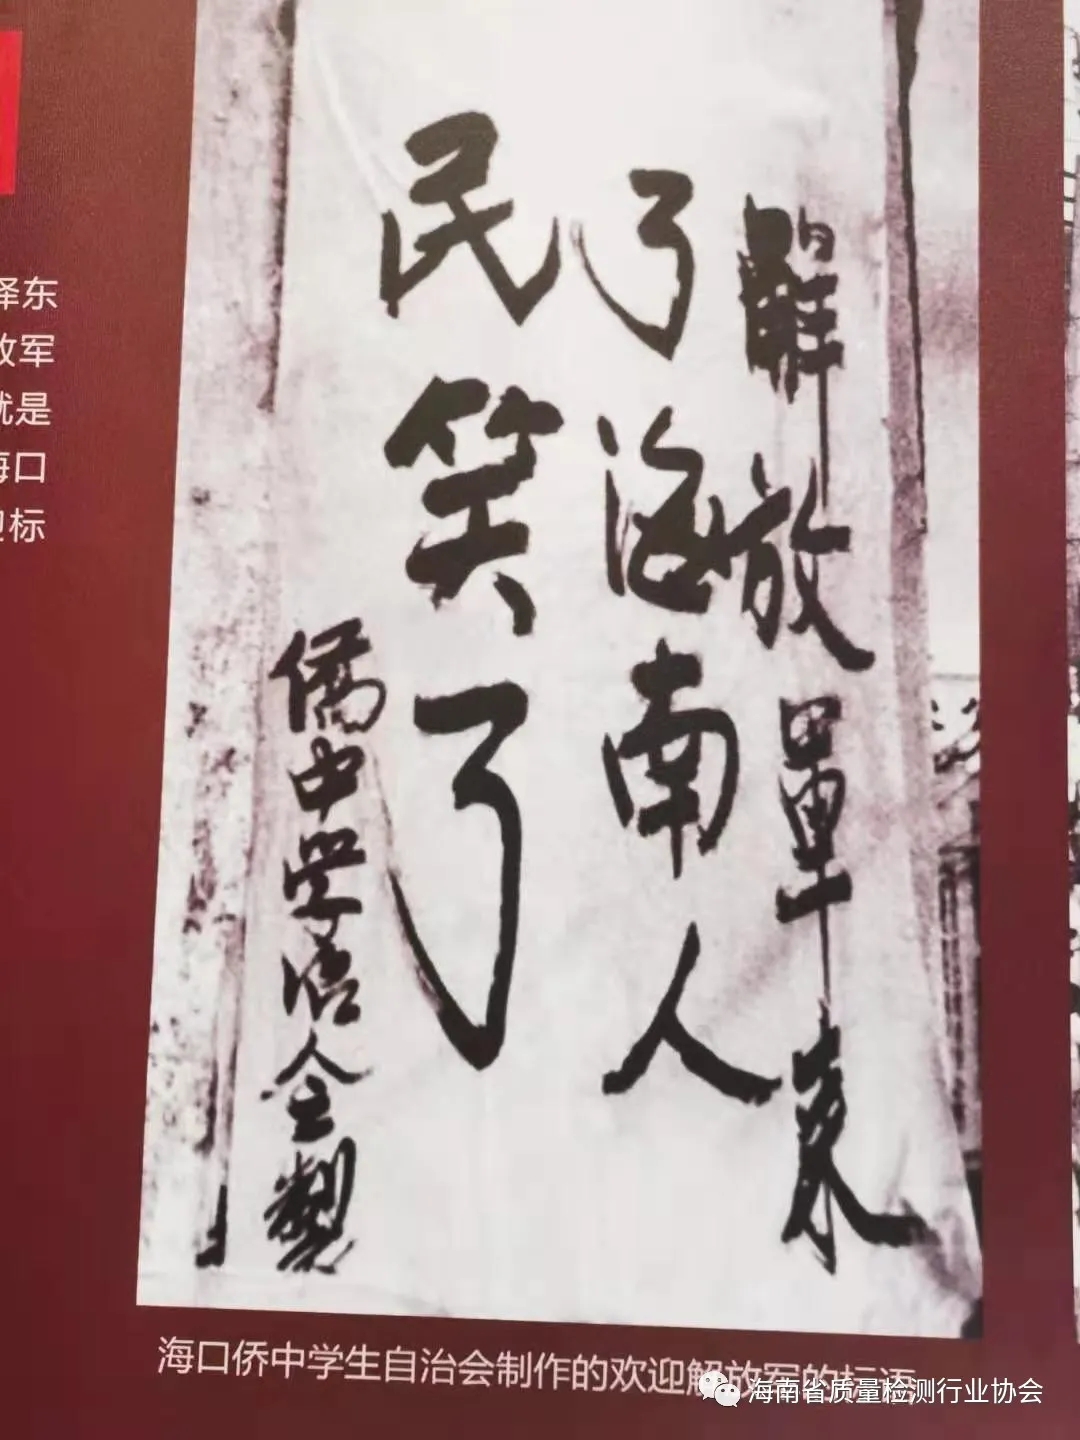 泽东
放军
就是
海口
迎标
解放軍來
了海南人
民笑了
僑中学治会製
海口侨中学生自治会制作的欢迎解放军的标语
海南省质量检测行业协会